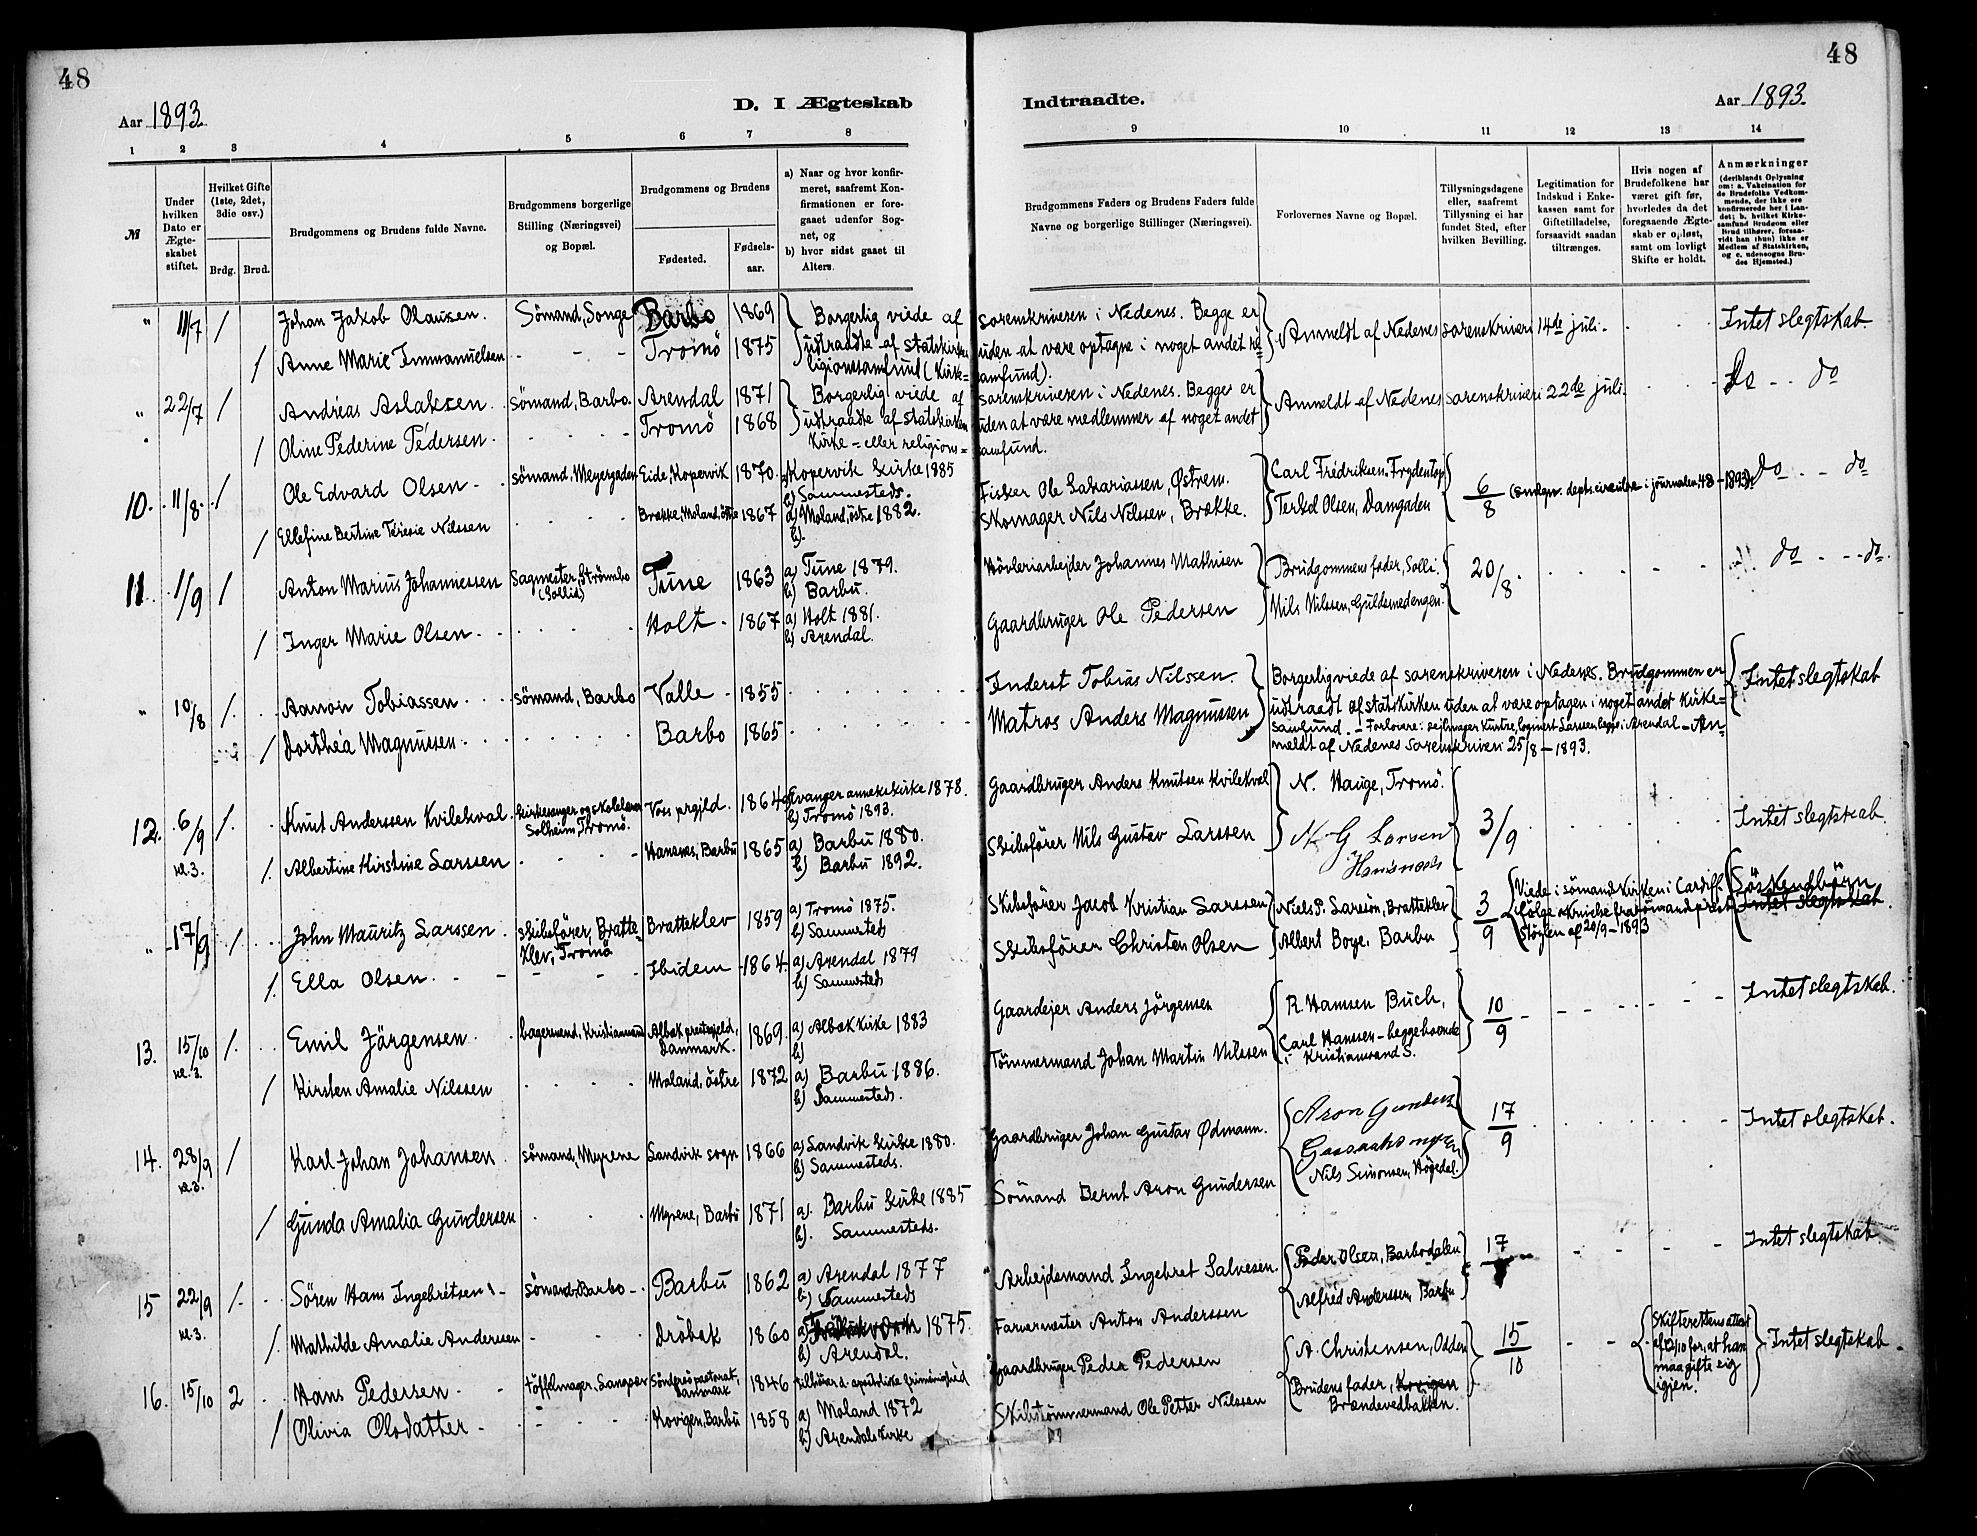 48
48
Aar 1893.
D. I Ægteskab
Indtraadte.
Aar 1893.
1 2 3 4 5 6 7 8 9 10 11 12 13 14
№
Under hvilken Dato er Ægteskabet stiftet.
Hvilket Gifte (1ste, 2det, 3die osv.)
Brdg. Brud.
Brudgommens og Brudens fulde Navne.
Brudgommens borgerlige Stilling (Næringsvei) og Bopæl.
Brudgommens og Brudens
Fødested.
Fødselsaar.
a) Naar og hvor konfirmeret, saafremt Konfirmationen er foregaaet udenfor Sognet, og
b) hvor sidst gaaet til Alters.
Brudgommens Faders og Brudens Faders fulde Navne og borgerlige Stillinger (Næringsvei).
Forlovernes Navne og Bopæl.
Tillysningsdagene eller, saafremt Tillysning ei har fundet Sted, efter hvilken Bevilling.
Legitimation for Indskud i Enkekassen samt for Giftetilladelse, forsaavidt saadan tiltrænges.
Hvis nogen af Brudefolkene har været gift før, hvorledes da det foregaaende Ægteskab er opløst, samt om lovligt Skifte er holdt.
Anmærkninger (deriblandt Oplysning om: a. Vakcination for de Brudefolks Vedkommende, der ikke ere konfirmerede her i Landet; b. hvilket Kirkesamfund Brudgom eller Brud tilhører, forsaavidt han (hun) ikke er Medlem af Statskirken, og c. udensogns Brudes Hjemsted.)
" 11/7 / Johan Jakob Olausen. Sömand, Songe Barbo 1869 Borgerlig viede af sorenskriveren i Nedenes. Begge er Anmeldt af Nedenes sorenskriveri 14de juli. Intet slegtskab.
/ Anne Marie Emmanuelsen Tromö 1875 udtraadte af statskirken uden at være optagne i noget andet re-
ligionssamfund (Kirke=samfund).
" 22/7 / Andreas Aslaksen. sömand, Barbo. Arendal 1871 Borgerlig viede af sorenskriveren i Nedenes. Begge er Anmeldt af Nedenes sorenskriveri 22de juli. do - - do
/ Oline Pederine Pedersen. Tromö 1868 udtraadte af statskirken uden at være medlemmer af noget andet
Kirke = eller religions=samfund.
10. 11/8. / Ole Edvard Olsen. sömand, Meyergaden Eide, Kopervik 1870. a) Kopervik Kirke 1885 b) Sammesteds. Fisker Ole Sakariassen, Østrem. Carl Fredriksen, Frydentop 6/8 do - - do
/ Ellefine Bertine Terese Nilssen Brække, Moland, östre 1867 a) Moland, östre 1882. b). Skomager Nils Nilssen, Brække. Terkel Olsen, Damgaden
11. 1/9 / Anton Marius Johannessen Sagmester, Strömbo (Sollid) Tune 1863 a) Tune 1879. b) Barbu. Hövleriarbejder Johannes Mathisen Brudgommens fader, Solli. 20/8. do - - do.
/ Inger Marie Olsen. Holt. 1867 a) Holt 1881. b) Arendal. Gaardbruger Ole Pedersen Nils Nilssen, Guldsmedengen.
" 10/8 /. Aanon Tobiassen. sömand, Barbo Valle 1855 Inderst Tobias Nilssen. Borgerlig viede af sorenskriveren i Nedenes. Brudgommen er Intet slegtskab
/ Dorthea Magnussen. Barbo 1865 Matros Anders Magnussen udtraadt af statskirken uden at være optagen i noget andet Kirke=
samfund. - Forlovere: sejlmager Kuntze, logmert Larssen begge i Arendal - An-
meldt af Nedenes sorenskriveri 25/8 - 1893.
12. 6/9 kl. 3. /. Knut Anderssen Kvilekval. Kirkesanger og skolelærer Solheim, Tromö. Voss prgjld. 1864 a) Evanger annekskirke 1878. b) Tromö 1893. Gaardbruger Anders Knutsen Kvilekval N. Hauge, Tromö. 3/9 Intet slegtskab.
/. Albertine Kirstine Larssen Hansnes, Barbu 1865 a) Barbu 1880. b) Barbu 1892. Skibsförer Nils Gustav Larssen N. G Larsen
" 17/9 /. John Mauritz Larssen. skibsförer, Bratte-klev, Tromö Bratteklev 1859 a) Tromö 1875. b) Sammesteds Skibsförer Jacob Kristian Larssen Niels P. Larssen, Bratteklev 3/9 Viede i sömandskirken i Cardiff ifölge skrivelse fra sömandsprest Stöylen af 20/9 - 1893 Söskendbörn Intet slegtskab.
/. Ella Olsen. Ibidem 1864. a) Arendal 1879 b) Sammesteds Skibsförer Christen Olsen Albert Boye, Barbu
13. 15/10 kl. 3. /. Emil Jörgensen. bagersvend, Kristianssand Albæk prestegjeld, Danmark. 1869. a) Albæk Kirke 1883 b) Gaardejer Anders Jörgensen R. Hansen Buch, 10/9 Intet slegtskab.
/ Kirsten Amalie Nilssen Moland, östre 1872 a) Barbu 1886. b) Sammesteds. Tömmermand Johan Martin Nilssen Carl Hanssen - begge boende i Kristianssand S.
14. 28/9 kl. 3. / Karl Johan Johansen. sömand, Myrene Sandvik sogn 1866 a) Sandvik Kirke 1880. b) Sammesteds. Gaardbruger Johan Gustav Ødmann. Aron Gunders 17/9 Intet slegtskab.
/ Gunda Amalia Gundersen Myrene, Barbu 1871 a). Barbu Kirke 1885 b). Sammesteds. Sömand Bernt Aron Gundersen Nils Simonsen, Högedal.
15 22/9 kl. 3. /. Sören Hans Ingebretsen. sömand, Barbo Barbu 1862 a) Arendal 1877 b) Sammesteds Arbejdsmand Ingebret Salvesen. Peder Olsen, Barbodalen 17 Intet slegtskab.
/. Mathilde Amalie Anderssen Dröbak 1860 a) 1875. b) Arendal. Farvermester Anton Anderssen Alfred Anderssen, Barbu
16. 15/10 2 Hans Pedersen. töffelmager, Langsæv Danmark 1846 Gaardbruger Peder Pedersen A. Christensen, Odden 15/10 Skifterettens attest af 12/10 for, at han maa gifte sig igjen. Intet slegtskab.
/ Olivia Olsdatter Kovigen, Barbu 1858 a) Moland 1872 b) Arendals Kirke Skibstömmermand Ole Petter Nilssen Brudens fader, Kovigen Brændevedbakken.